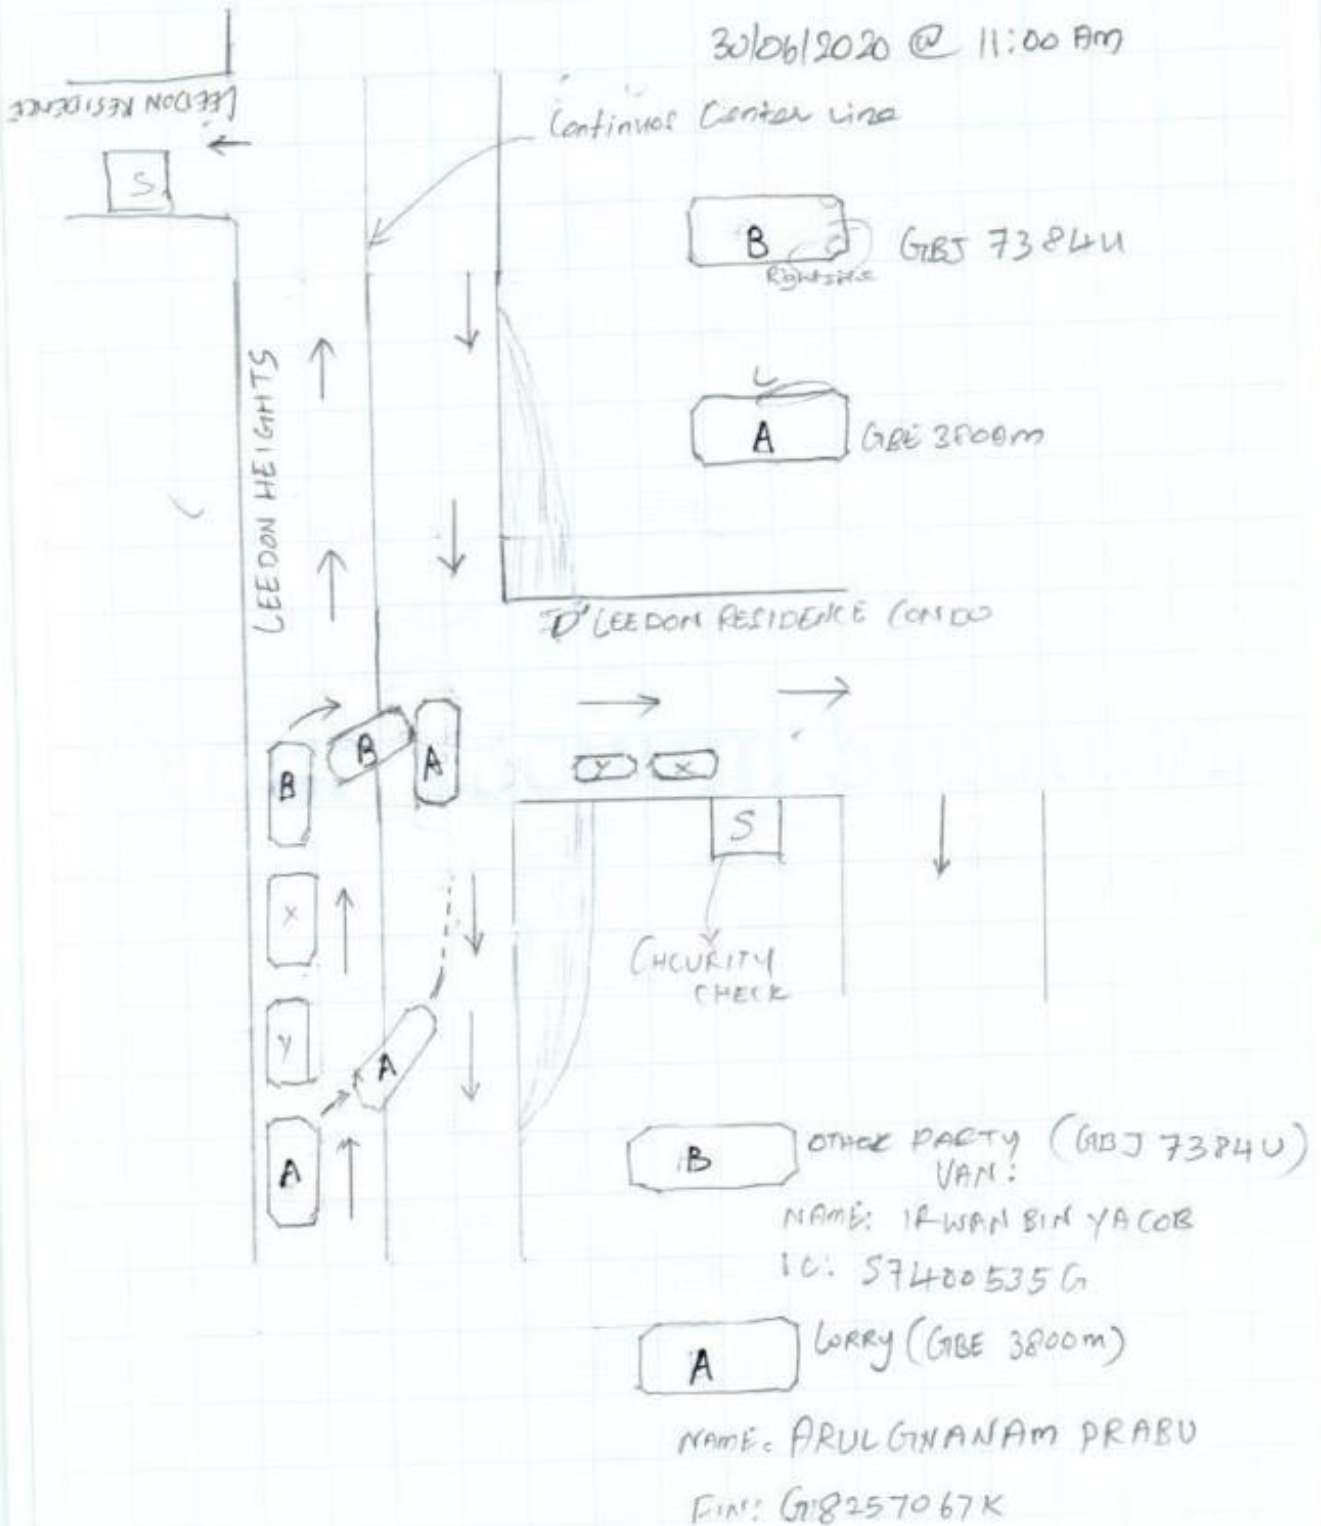 30/06/2020 @ 11:00 Am
LEEDON RESIDENCE
Continuos Center Line
S
B
GBJ 7384U
Rightside
L
A
GBE 3800m
LEEDON HEIGHTS
"D' LEEDON RESIDENCE CONDO
B
B
A
Y
X
S
X
CHCURITY
CHECK
Y
A
A
B
OTHER PARTY (GBJ 7384U)
VAN:
NAME: IRWAN BIN YACOB
IC: S7400535G
A
LORRY (GBE 3800m)
NAME: ARUL GNANAM PRABU
FIN: G8257067K